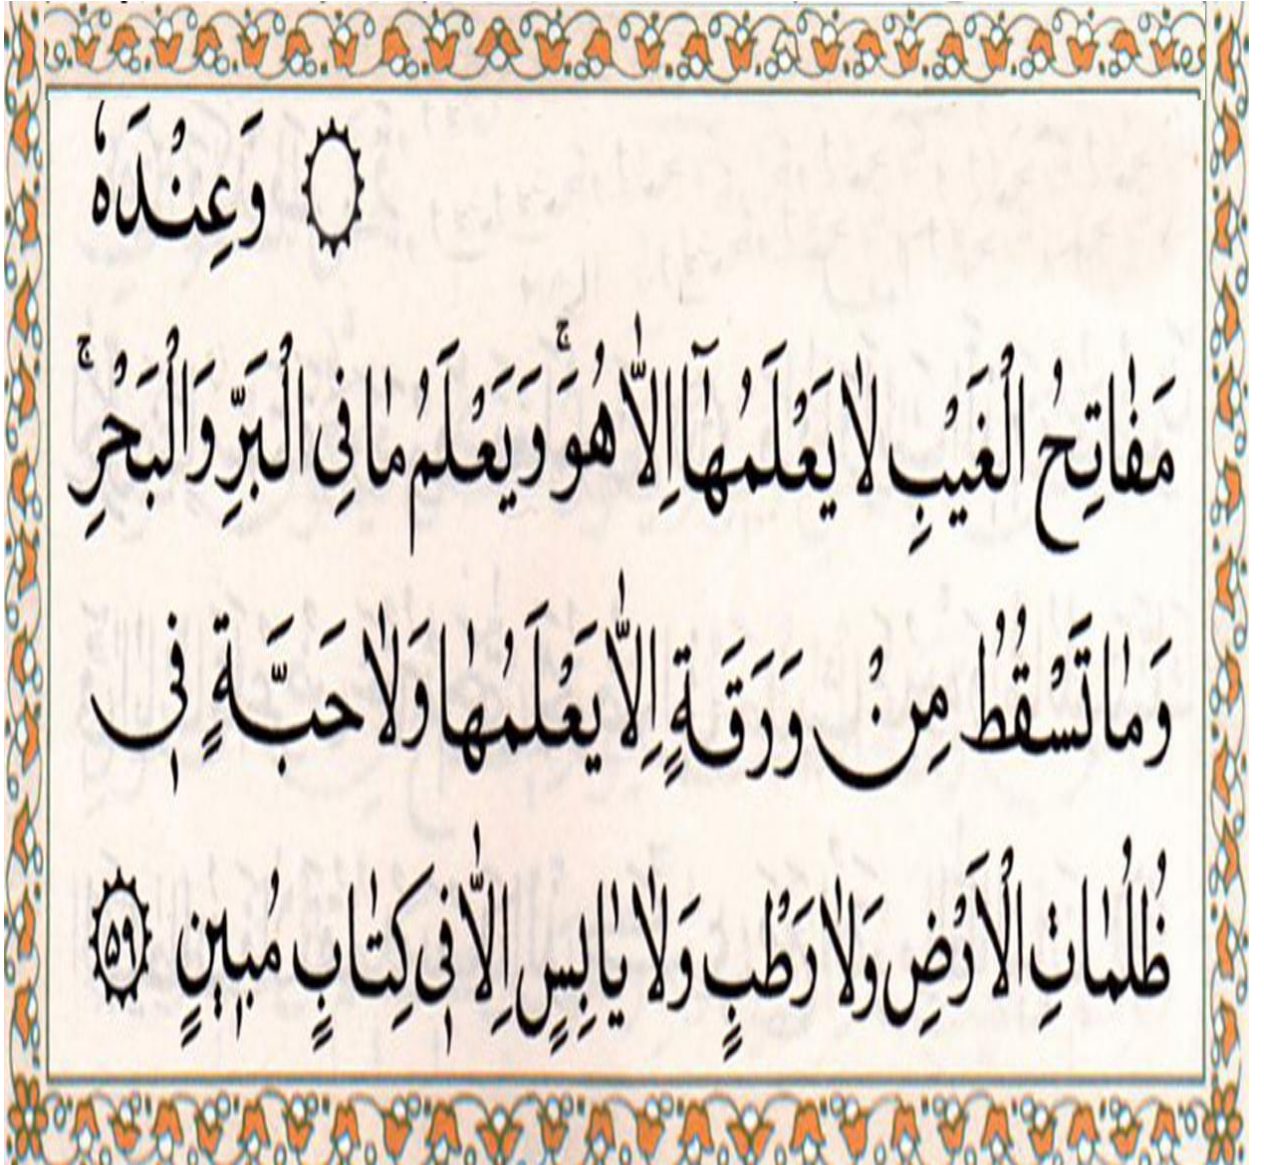 وَعِنْدَهُ
مَفَاتِحُ الْغَيْبِ لَا يَعْلَمُهَآ اِلَّا هُوَ ۚ وَيَعْلَمُ مَا فِى الْبَرِّ وَالْبَحْرِ ۚ
وَمَا تَسْقُطُ مِنْ وَرَقَةٍ اِلَّا يَعْلَمُهَا وَلَا حَبَّةٍ فٖى
ظُلُمَاتِ الْاَرْضِ وَلَا رَطْبٍ وَلَا يَابِسٍ اِلَّا فٖى كِتَابٍ مُبٖينٍ ﴿٥٩﴾